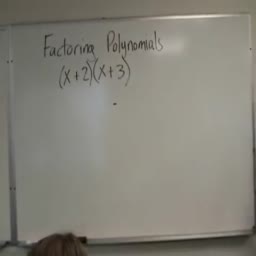 Factoring Polynomials
(x+2)(x+3)